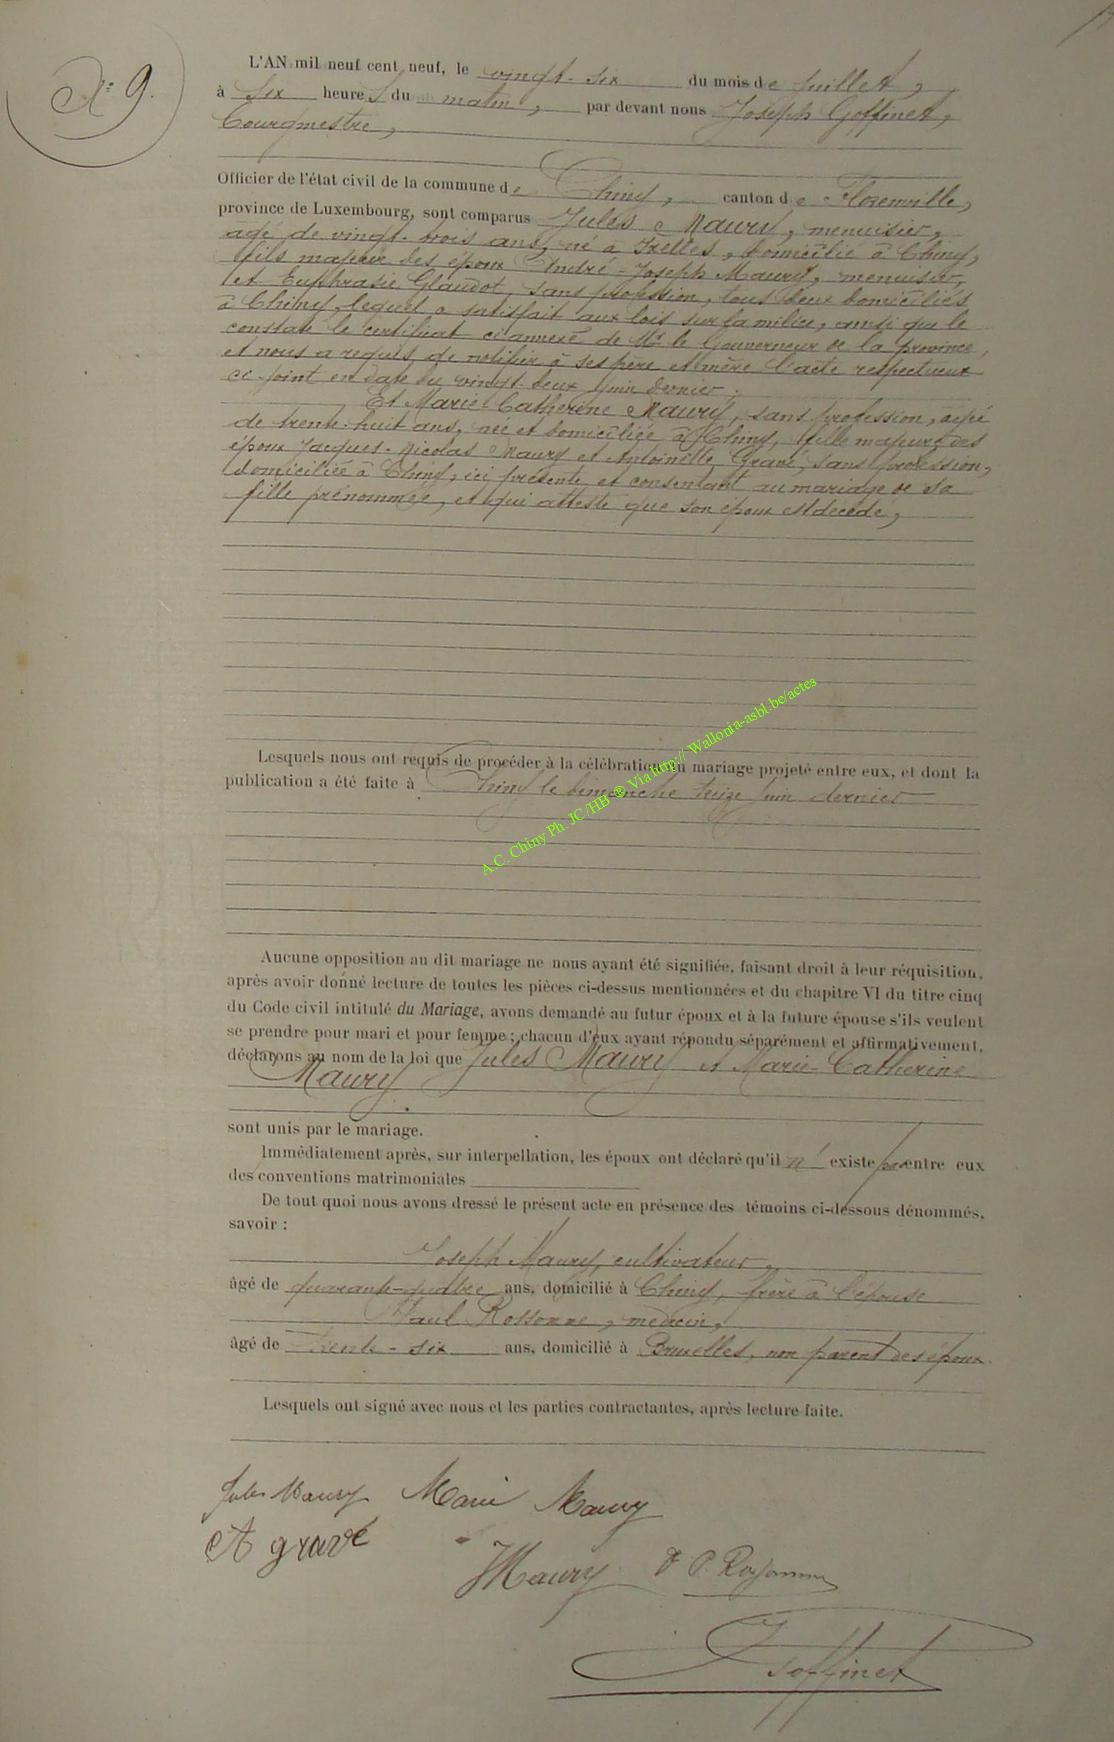 N° 9.
L'AN mil neuf cent neuf, le vingt-six du mois de Juillet,
à six heures du matin, par devant nous Joseph Goffinet,
Bourgmestre,
Officier de l'état civil de la commune de Chiny, canton de Florenville,
province de Luxembourg, sont comparus Jules Maury, menuisier,
agé de vingt-trois ans, né à Ixelles, domicilié à Chiny,
fils majeur des époux André-Joseph Maury, menuisier,
et Euphrasie Glaudot, sans profession, tous deux domiciliés
à Chiny, lequel a satisfait aux lois sur la milice, ainsi que le
constate le certificat ci-annexé de Mr le Gouverneur de la province,
et nous a requis de notifier à ses père et mère l'acte respectueux
ci-joint en date du vingt-deux juin dernier;
Et Marie-Catherine Maury, sans profession, agée
de trente-huit ans, née et domiciliée à Chiny, fille majeure des
époux Jacques-Nicolas Maury et Antoinette Gravé, sans profession,
domiciliée à Chiny, ici présente et consentant au mariage de sa
fille prénommée, et qui atteste que son époux est décédé,
Lesquels nous ont requis de procéder à la célébration du mariage projeté entre eux, et dont la
publication a été faite à Chiny le dimanche treize juin dernier
A.C. Chiny Ph. JC/HB ® Via http:// Wallonia-asbl.be/actes
Aucune opposition au dit mariage ne nous ayant été signifiée, faisant droit à leur réquisition,
après avoir donné lecture de toutes les pièces ci-dessus mentionnées et du chapitre VI du titre cinq
du Code civil intitulé du Mariage, avons demandé au futur époux et à la future épouse s'ils veulent
se prendre pour mari et pour femme; chacun d'eux ayant répondu séparément et affirmativement,
déclarons au nom de la loi que Jules Maury et Marie-Catherine
Maury
sont unis par le mariage.
Immédiatement après, sur interpellation, les époux ont déclaré qu'il n' existe pas entre eux
des conventions matrimoniales
De tout quoi nous avons dressé le présent acte en présence des témoins ci-dessous dénommés,
savoir :
Joseph Maury, cultivateur,
âgé de quarante-quatre ans, domicilié à Chiny, frère à l'épouse
Paul Rossomme, médecin,
âgé de trente-six ans, domicilié à Bruxelles, non parent des époux.
Lesquels ont signé avec nous et les parties contractantes, après lecture faite.
Jules Maury Marie Maury
A gravé
JMaury
JGoffinet